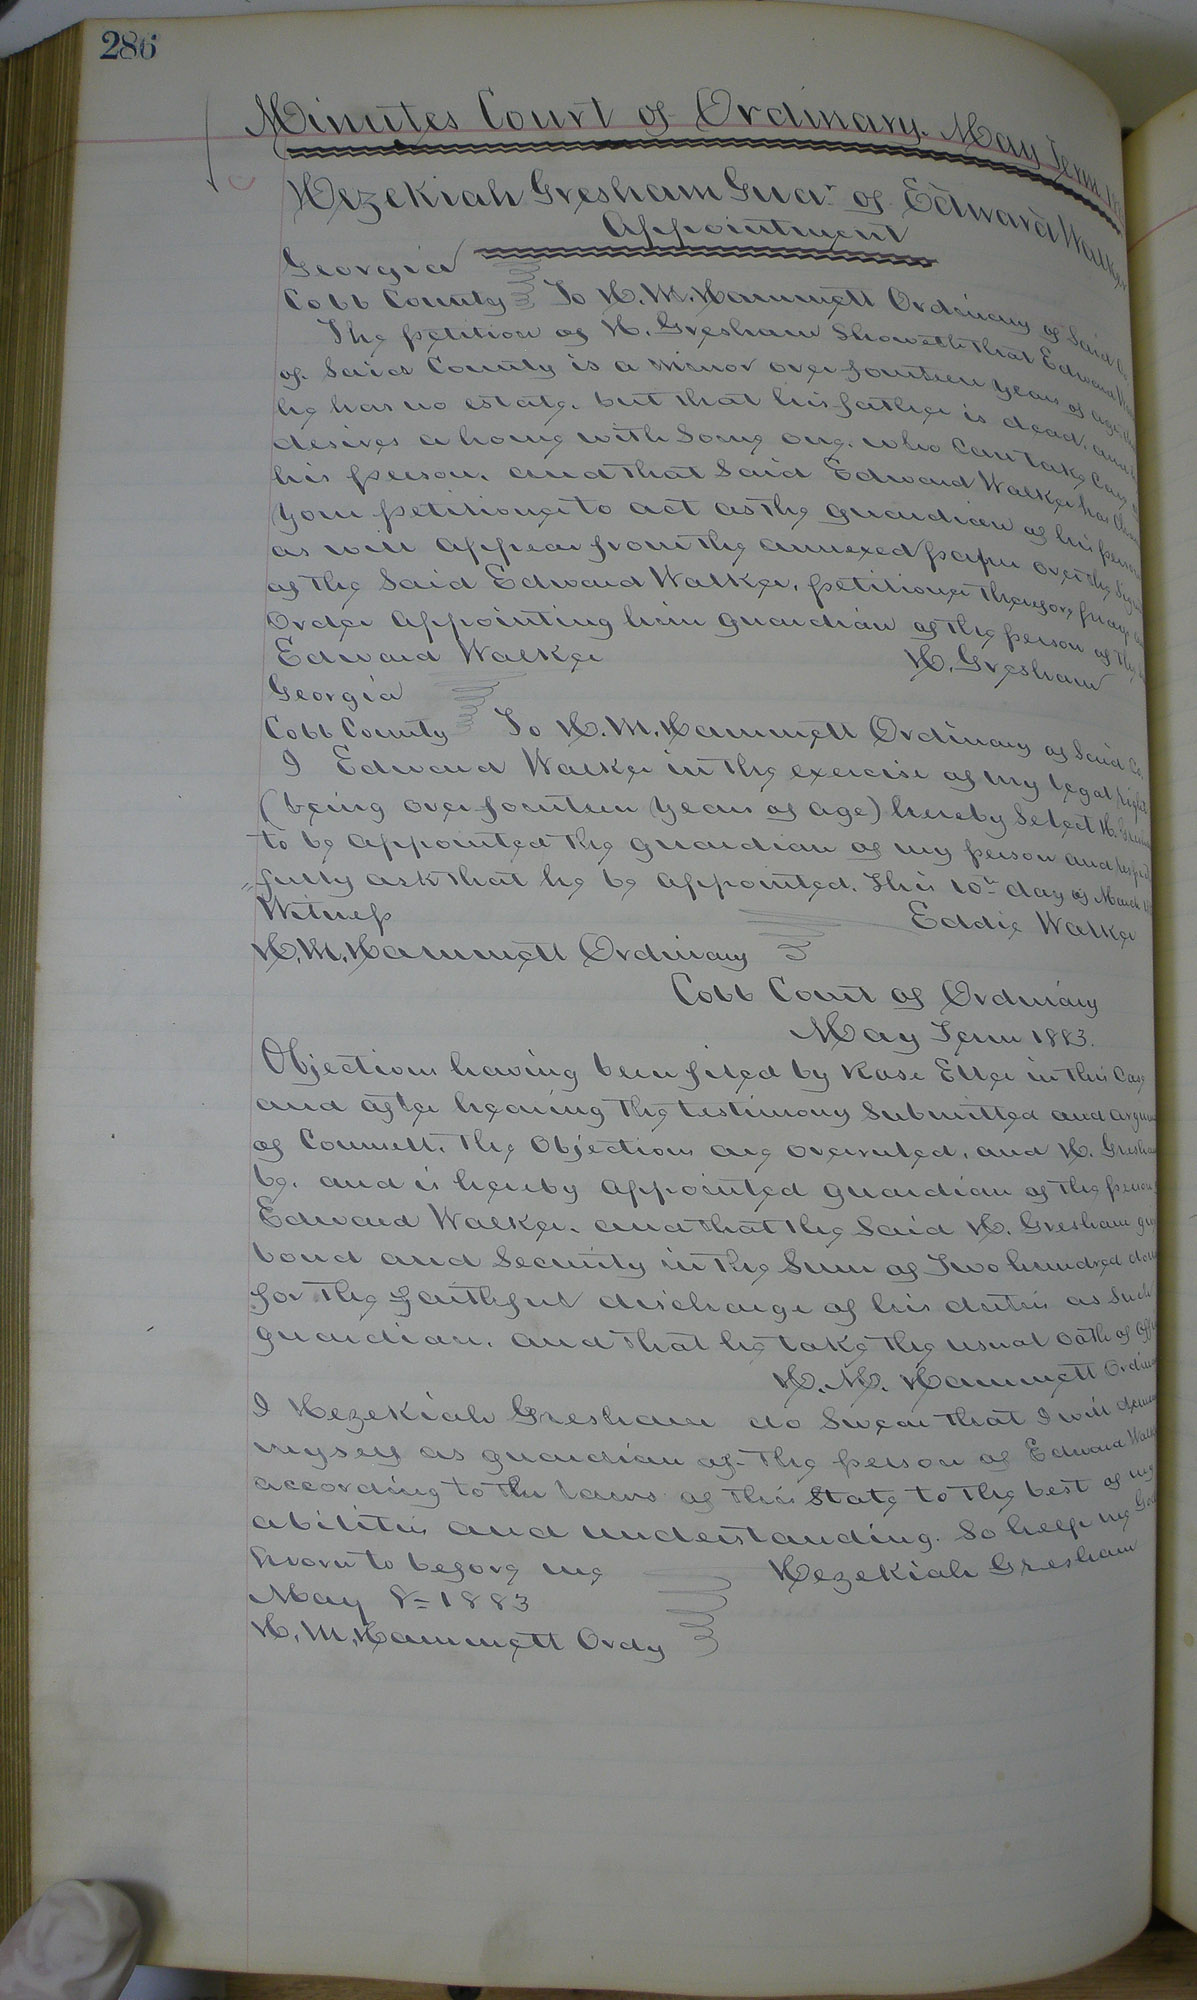 286
Minutes Court of Ordinary. May Term
Hezekiah Gresham Guar of Edward Walker
Appointment
Georgia
Cobb County To H. M. Hammett Ordinary of Said Co.
The petition of H. Gresham Showeth that Edward
of Said County is a minor over fourteen years of age
he has no estate. but that his father is dead. and
desires a home with Some one. who can take Care
his person. and that Said Edward Walker has
your petitioner to act as the guardian of his person
as will appear from the annexed paper over the
of the Said Edward Walker. petitioner therefore prays
Order Appointing him guardian of the person of the
Edward Walker H. Gresham
Georgia
Cobb County To H. M. Hammett Ordinary of Said Co.
I Edward Walker in the exercise of my legal right
(being over fourteen years of age) hereby Select H.
to be appointed the guardian of my person and respect
"fully ask that he be appointed. This 10th day of March
Witness Eddie Walker
H. M. Hammett Ordinary
Cobb Court of Ordinary
May Term 1883.
Objections having been filed by Rose Etter in this Case
and after hearing the testimony Submitted and
of Counsell. The Objections are overruled. and H. Gresham
be. and is hereby appointed guardian of the person
Edward Walker. and that the Said H. Gresham
bond and Security in the Sum of Two hundred
for the faithful discharge of his duties as Such
guardian. and that he take the usual oath of
H. M. Hammett
I Hezekiah Gresham do Swear that I will
myself as guardian of the person of Edward
according to the laws of this State to the best of my
abilities and understanding. So help me God
Sworn to before me Hezekiah Gresham
May 8= 1883
H. M. Hammett Ordy